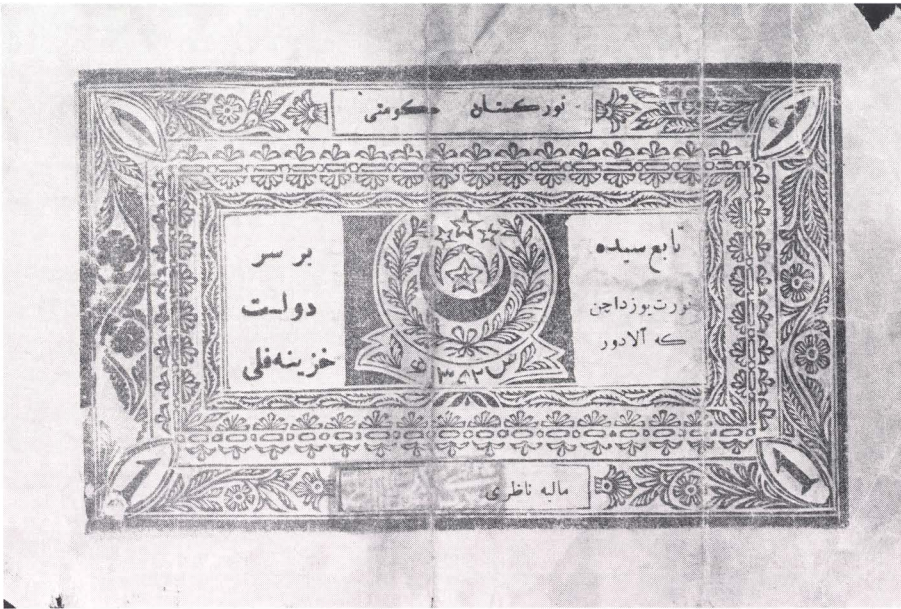 تورکستان حکومتی
١
١
تابع سیده
تورت یوز داچن
که آلادور
بر سر
دولت
خزینه‌فلی
س ١٣٥٢ ھ
مالیه ناظری
1
1